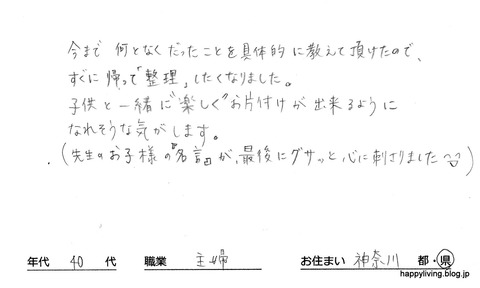 今まで 何となくだったことを具体的に教えて頂けたので、
すぐに帰って「整理」したくなりました。
子供と一緒に"楽しく"お片付けが出来るように
なれそうな気がします。
(先生のお子様の『名言』が、最後にグサッと心に刺さりました)
年代 40 代 職業 主婦 お住まい 神奈川 都・県
happyliving.blog.jp